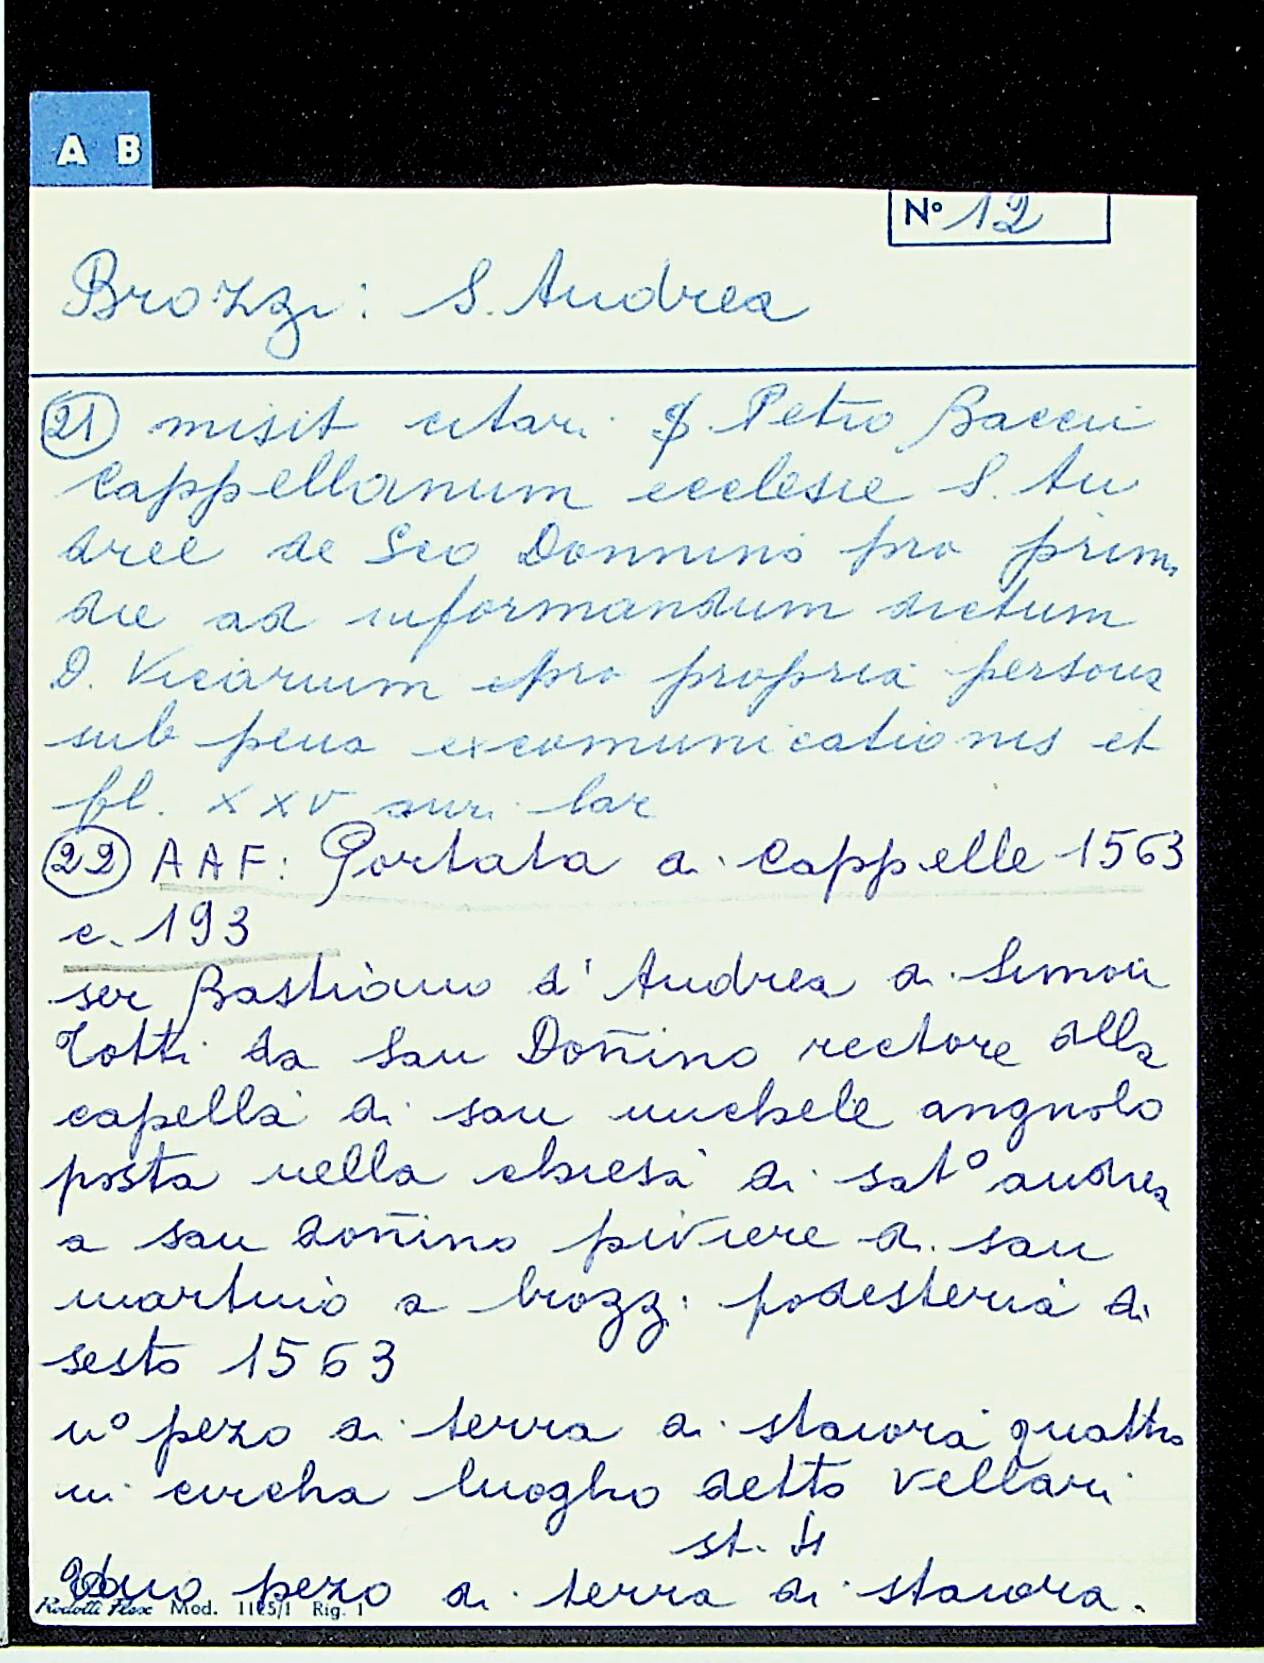 A B
N° 12
Brozzi: S. Andrea
(21) misit citari S. Petro Baccii
Cappellanum ecclesie S. An
dree de Sco Donnino pro prim.
die ad informandum dictum
D. Vicarium pro propria persona
sub pena excomunicationis et
fl. XXV auri lar
(22) AAF: Portata di Cappelle 1563
c. 193
ser Bastiano d'Andrea di Simon
Totti da San Doñino rectore alla
capella di san michele angnolo
posta nella chiesa di sat° andrea
a san doñino piviere di san
martino a brozzi podesteria di
sesto 1563
n° pezo di terra di staiora quattro
in circha luogho detto vellari
st. 4
Uno pezo di terra di staiora.
Rodolli Flex Mod. 1125/1 Rig. 1